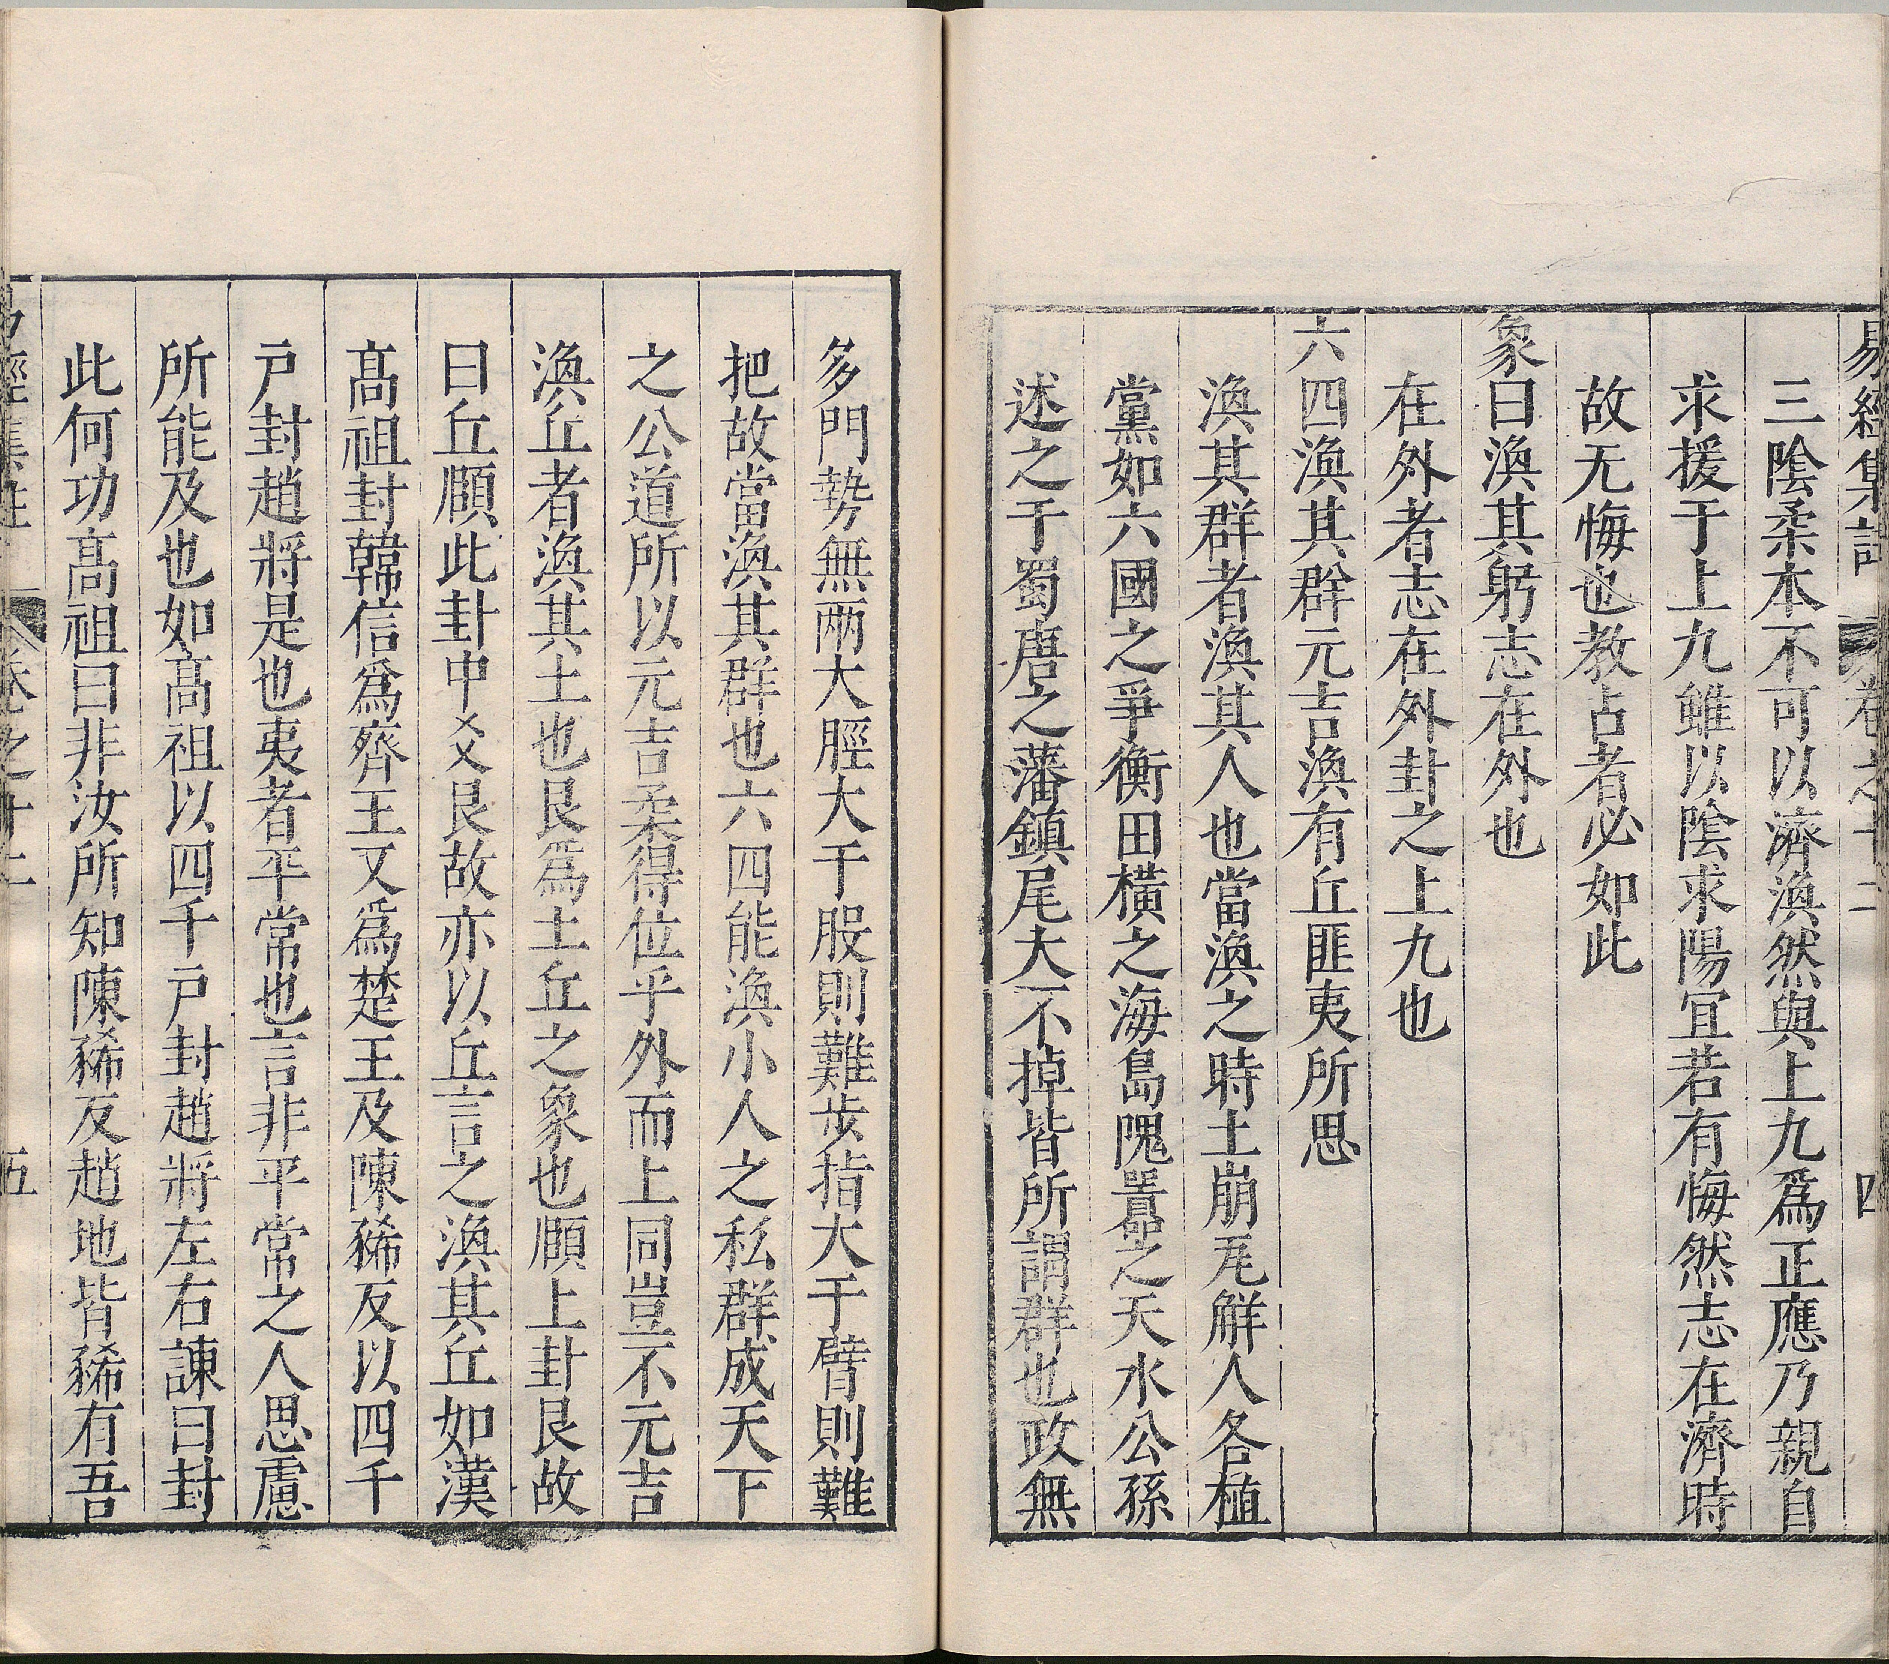 易經集註 卷之十二 四
三陰柔本不可以濟渙然與上九爲正應乃親自
求援于上九雖以陰求陽宜若有悔然志在濟時
故无悔也教占者必如此
象曰渙其躬志在外也
在外者志在外卦之上九也
六四渙其群元吉渙有丘匪夷所思
渙其群者渙其人也當渙之時土崩瓦解人各植
黨如六國之爭衡田橫之海島隗囂之天水公孫
述之于蜀唐之藩鎮尾大不掉皆所謂群也政無
多門勢無兩大脛大于股則難步指大于臂則難
把故當渙其群也六四能渙小人之私群成天下
之公道所以元吉柔得位乎外而上同豈不元吉
渙丘者渙其土也艮爲土丘之象也頤上卦艮故
曰丘頤此卦中爻艮故亦以丘言之渙其丘如漢
高祖封韓信爲齊王又爲楚王及陳豨反以四千
戶封趙將是也夷者平常也言非平常之人思慮
所能及也如高祖以四千戶封趙將左右諫曰封
此何功高祖曰非汝所知陳豨反趙地皆豨有吾
易經集註 卷之十二 五